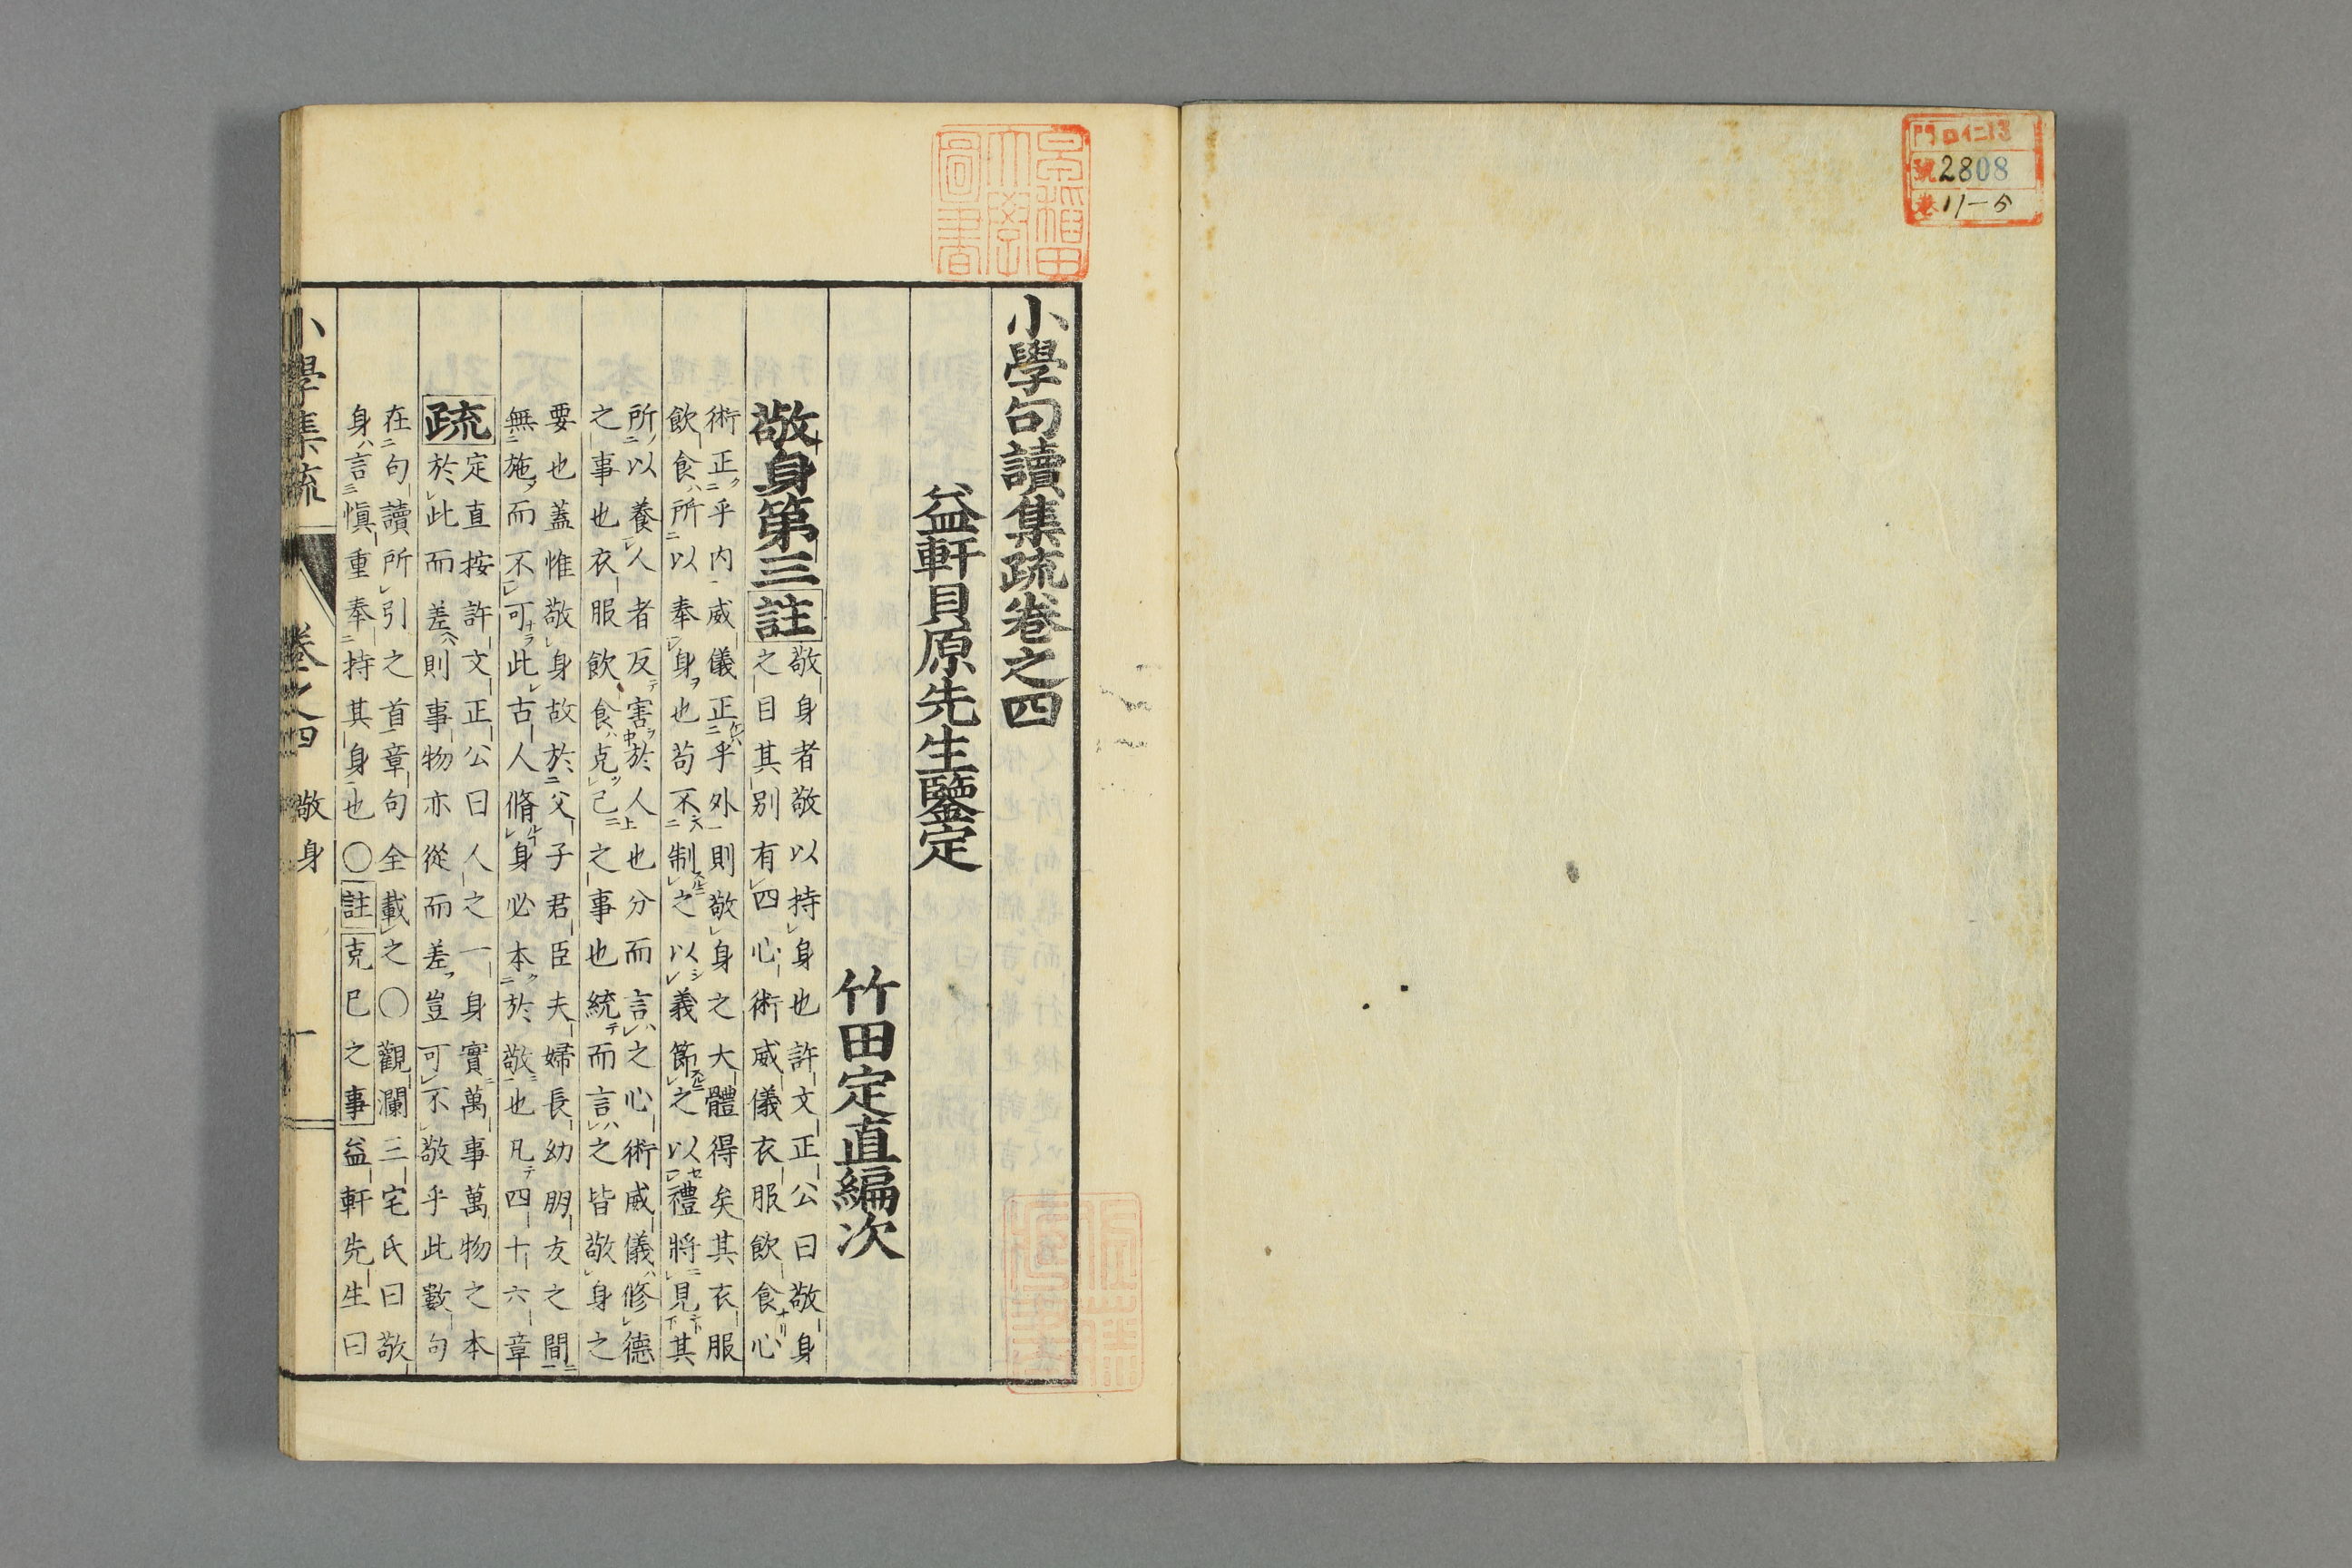 門 ロ仁13
號 2808
巻 11-5
早稲田
大學
圖書
小學句讀集疏卷之四
益軒貝原先生鑒定
竹田定直編次
敬身第三 註
敬身者敬以持身也許文正公曰敬身
之目其別有四心術威儀衣服飲食心
術正乎内威儀正乎外則敬身之大體得矣其衣服
飲食所以奉身也苟不制之以義節之以禮將見其
所以養人者反害於人也分而言之心術威儀修德
之事也衣服飲食克己之事也統而言之皆敬身之
要也蓋惟敬身故於父子君臣夫婦長幼朋友之間
無施而不可此古人脩身必本於敬也凡四十六章
疏
定直按許文正公曰人之一身實萬事萬物之本
於此而差則事物亦從而差豈可不敬乎此數句
在句讀所引之首章句全載之〇觀瀾三宅氏曰敬
身言愼重奉持其身也〇註克己之事益軒先生曰
小學集疏 卷之四 敬身 一